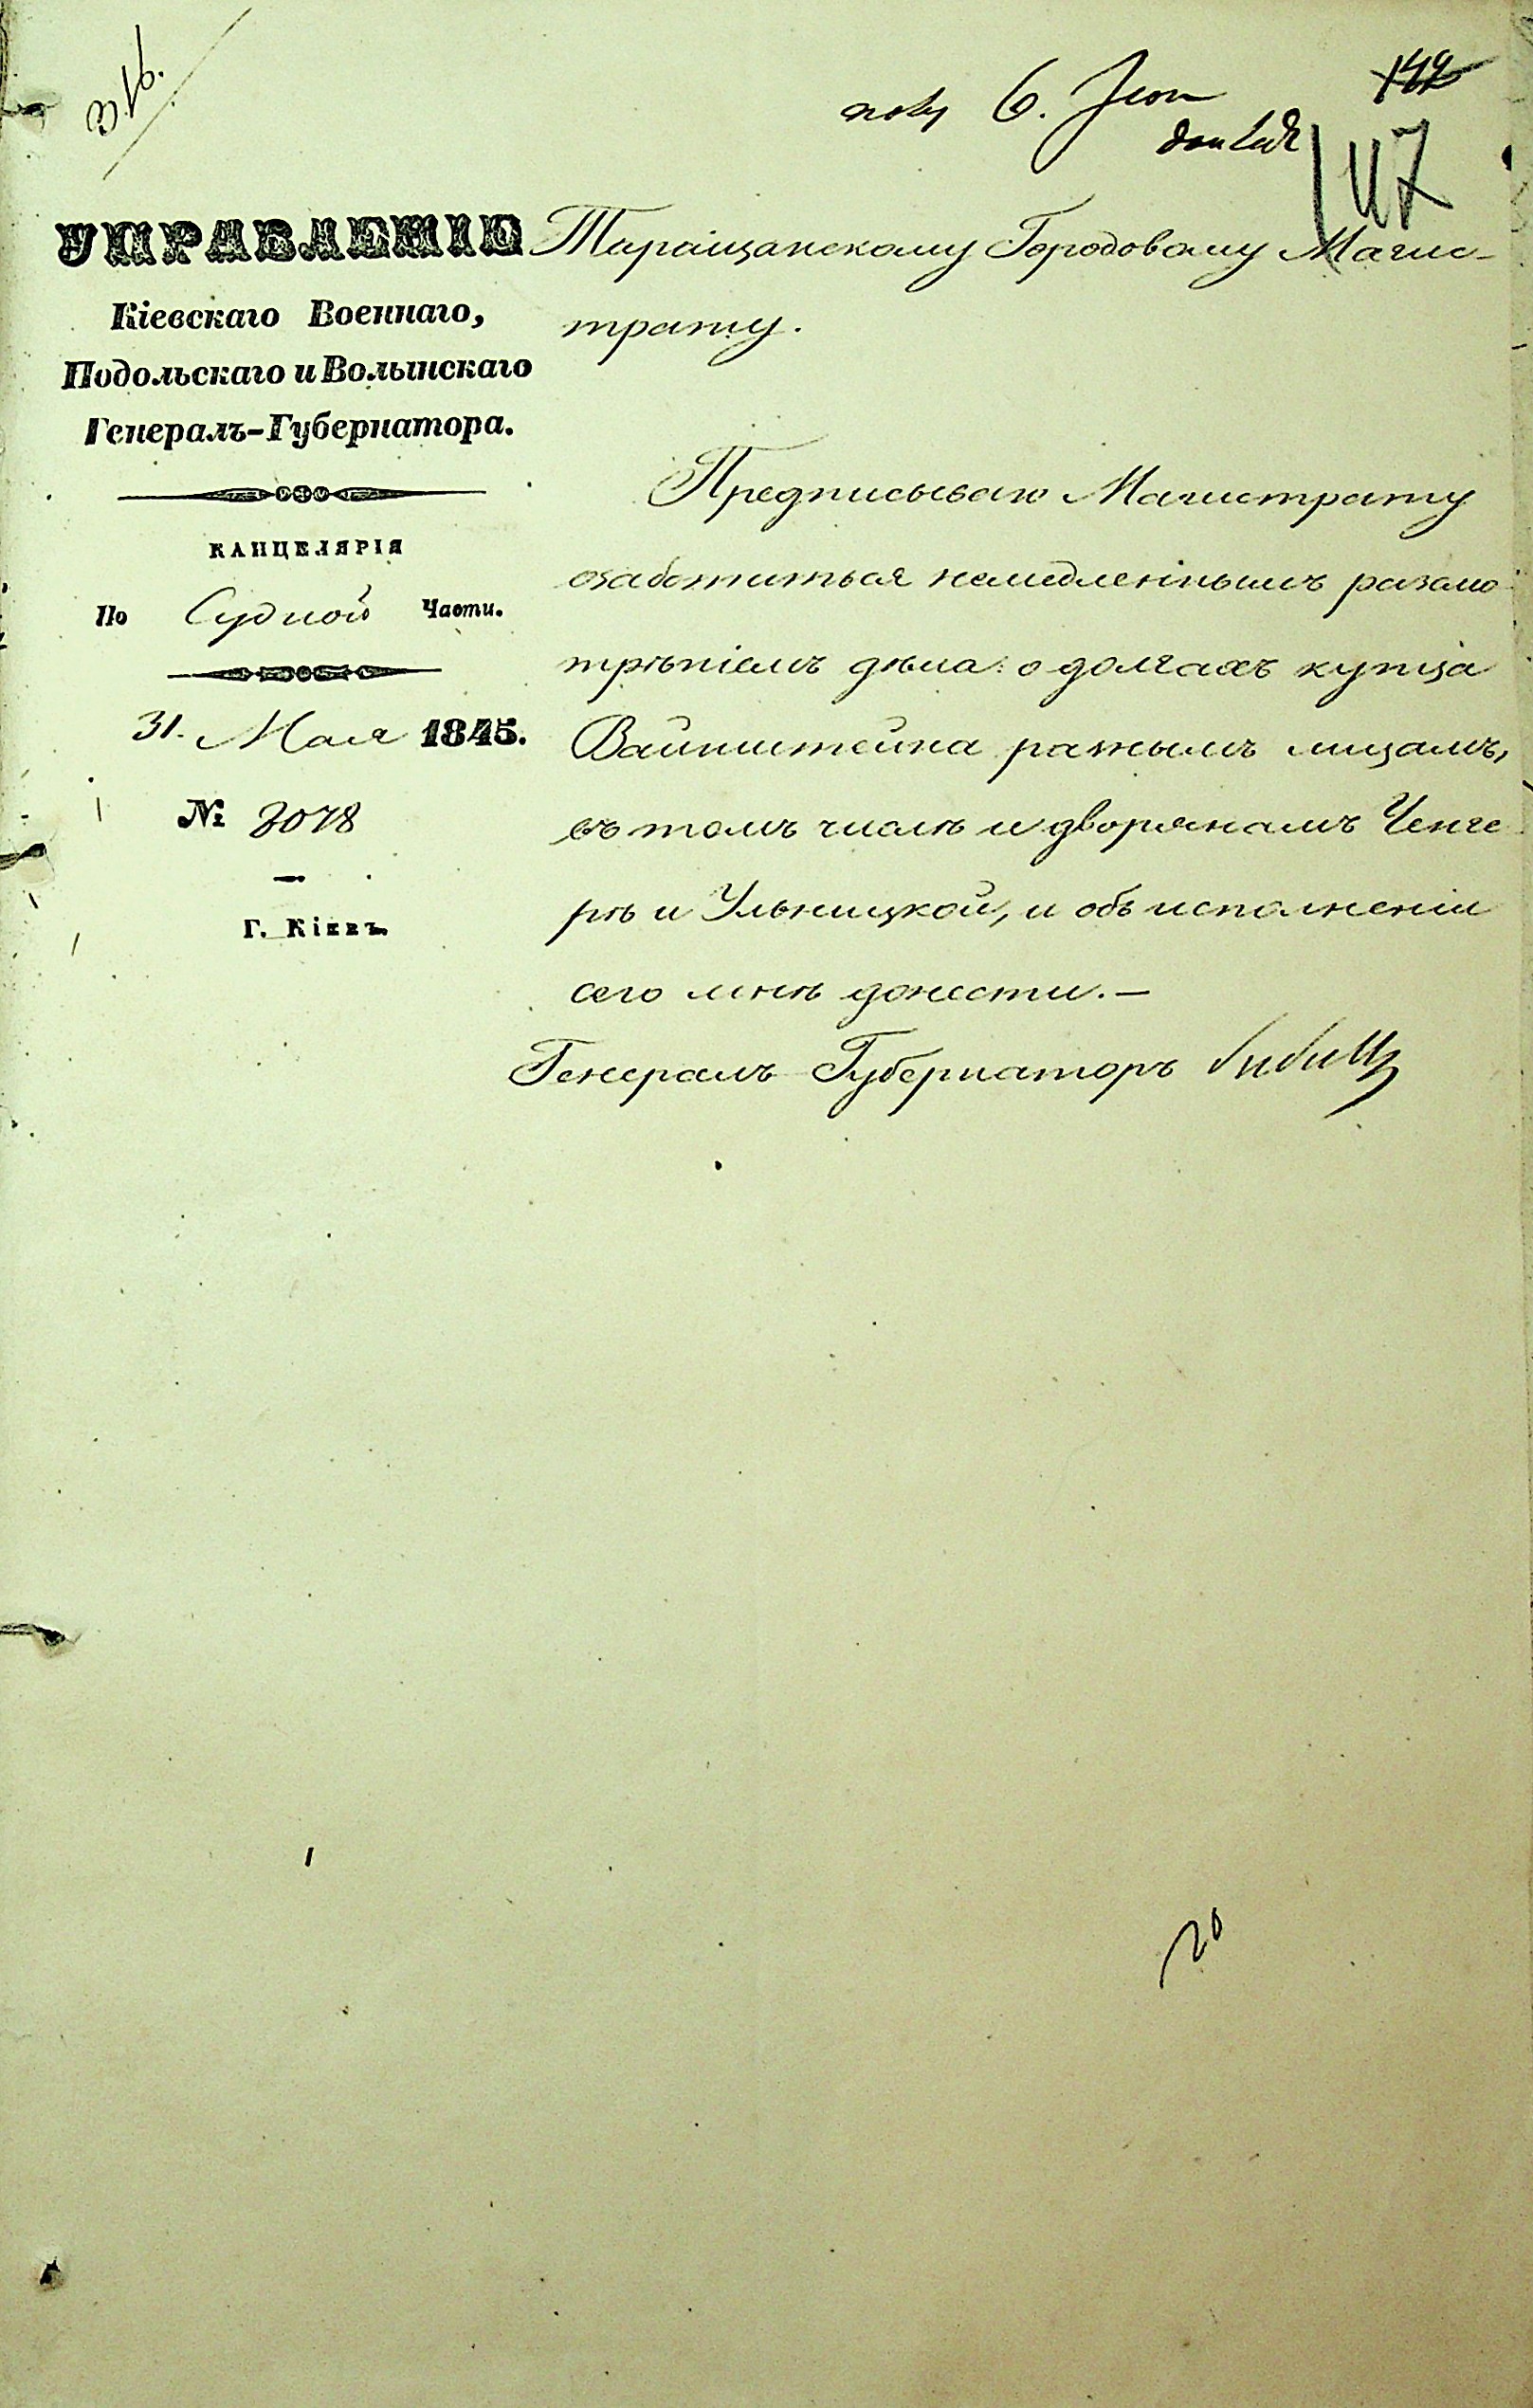 316.
6. Іюн
142
147
УПРАВЛЕНІЕ
Кіевскаго Военнаго,
Подольскаго и Волынскаго
Генералъ-Губернатора.
КАНЦЕЛЯРІЯ
По Судной Части.
31. Мая 1845.
№ 3078
Г. Кіевъ.
Таращанскому Городовому Магис-
трату.
Предписываю Магистрату
озаботиться немедленнымъ разсмо
трѣніемъ дѣла о долгахъ купца
Вайнштейна разнымъ лицамъ,
въ томъ числѣ и дворянамъ Ченге
рѣ и Ульницкой, и объ исполненіи
сего мнѣ донести.—
Генералъ Губернаторъ Бибиковъ
20